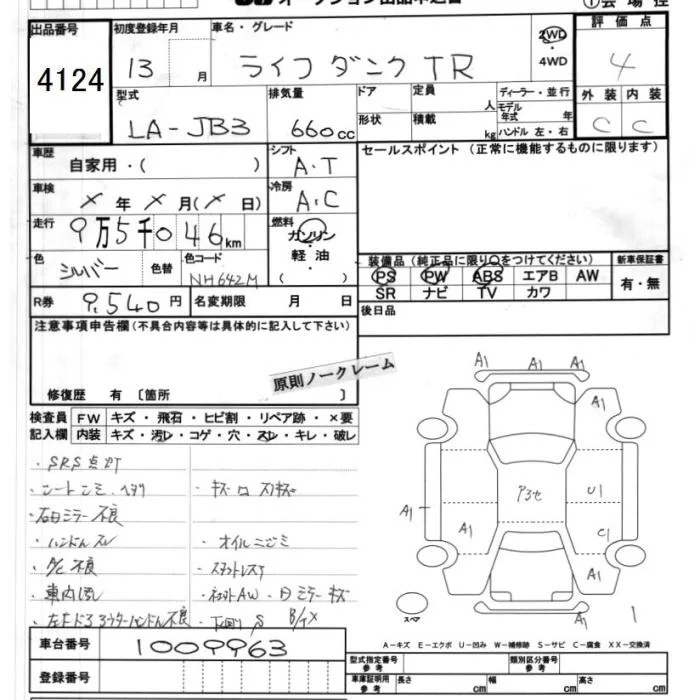 出品番号
4124
初度登録年月
13 月
車名・グレード
ライフ ダンク TR
2WD
・
4WD
評価点
4
型式
LA-JB3
排気量
660cc
ドア
形状
定員
人
積載
kg
ディーラー・並行
モデル年式 年
ハンドル 左・右
外装 内装
C C
車歴
自家用・( )
シフト
A・T
セールスポイント(正常に機能するものに限ります)
車検
× 年 × 月(× 日)
冷房
A・C
走行
9万5千046km
燃料
ガソリン
軽油
・
( )
色
シルバー
色替
色コード
NH642M
装備品(純正品に限り○をつけてください)
PS PW ABS エアB AW
SR ナビ TV カワ
新車保証書
有・無
R券 9,540円
名変期限 月 日
後日品
注意事項申告欄(不具合内容等は具体的に記入して下さい)
原則ノークレーム
修復歴 有〔箇所 〕
検査員記入欄
FW キズ・飛石・ヒビ割・リペア跡・×要
内装 キズ・汚レ・コゲ・穴・スレ・キレ・破レ
・SRS点灯
・ハンドルスレ
・A/C不良
・オイルニジミ
A1 A1 A1
A1
A1
A1
P3セ
U1
C1
A1
A1
スペア
1
A-キズ E-エクボ U-凹み W-補修跡 S-サビ C-腐食 XX-交換済
車台番号
1009963
登録番号
型式指定番号
参考
類別区分番号
参考
車庫証明用
参考
長さ cm
幅 cm
高さ cm